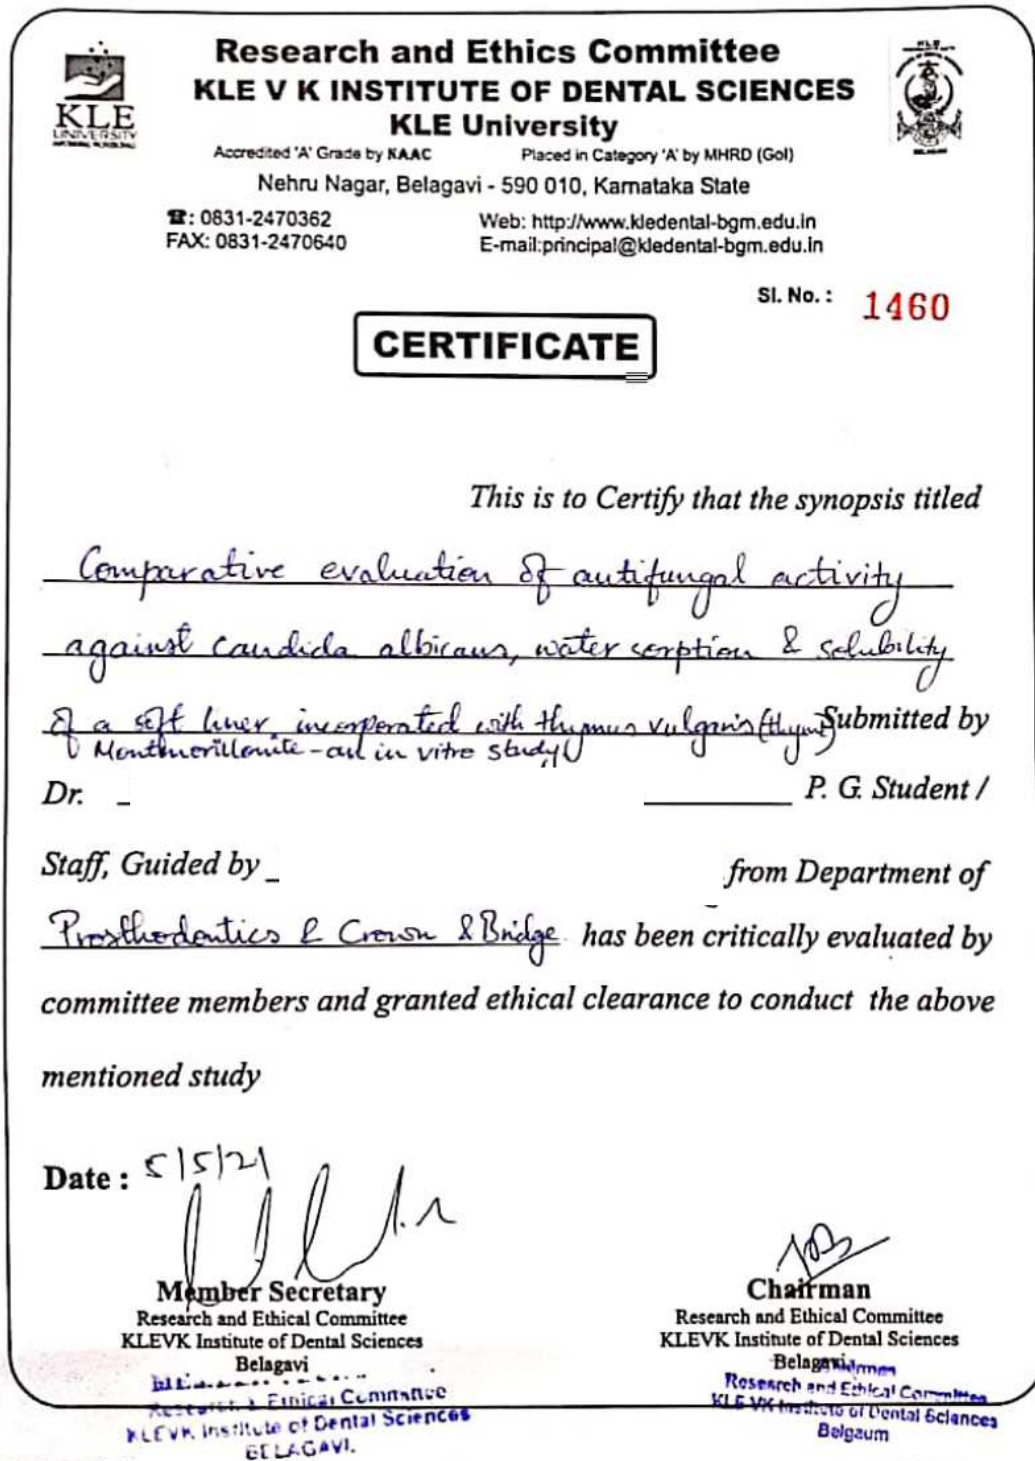 KLE
UNIVERSITY
Research and Ethics Committee
KLE V K INSTITUTE OF DENTAL SCIENCES
KLE University
Accredited 'A' Grade by NAAC Placed in Category 'A' by MHRD (GoI)
Nehru Nagar, Belagavi - 590 010, Karnataka State
☎: 0831-2470362 Web: http://www.kledental-bgm.edu.in
FAX: 0831-2470640 E-mail:principal@kledental-bgm.edu.in
KLE
BELAGAVI
Sl. No. : 1460
CERTIFICATE
This is to Certify that the synopsis titled
Comparative evaluation of antifungal activity
against candida albicans, water sorption & solubility
of a soft liner incorporated with thymus vulgaris (thyme) Submitted by
Montmorillonite - an in vitro study
Dr. P. G. Student /
Staff, Guided by from Department of
Prosthodontics & Crown & Bridge has been critically evaluated by
committee members and granted ethical clearance to conduct the above
mentioned study
Date : 5/5/21
Member Secretary
Research and Ethical Committee
KLEVK Institute of Dental Sciences
Belagavi
Research & Ethical Committee
KLEVK Institute of Dental Sciences
BELAGAVI.
Chairman
Research and Ethical Committee
KLEVK Institute of Dental Sciences
Belagavi
Chairman
Research and Ethical Committee
KLE VK Institute of Dental Sciences
Belgaum